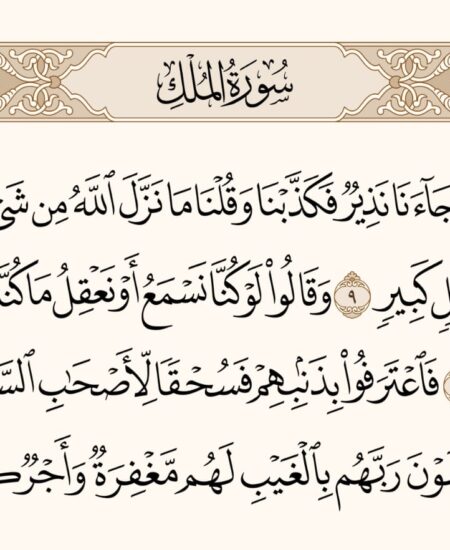 سُورَةُ الْمُلْكِ
جَآءَنَا نَذِيرٌ فَكَذَّبْنَا وَقُلْنَا مَا نَزَّلَ ٱللَّهُ مِن
كَبِيرٍ ٩ وَقَالُوا۟ لَوْ كُنَّا نَسْمَعُ أَوْ نَعْقِلُ مَا كُنَّا
فَٱعْتَرَفُوا۟ بِذَنۢبِهِمْ فَسُحْقًا لِّأَصْحَٰبِ
رَبَّهُم بِٱلْغَيْبِ لَهُم مَّغْفِرَةٌ وَأَجْرٌ